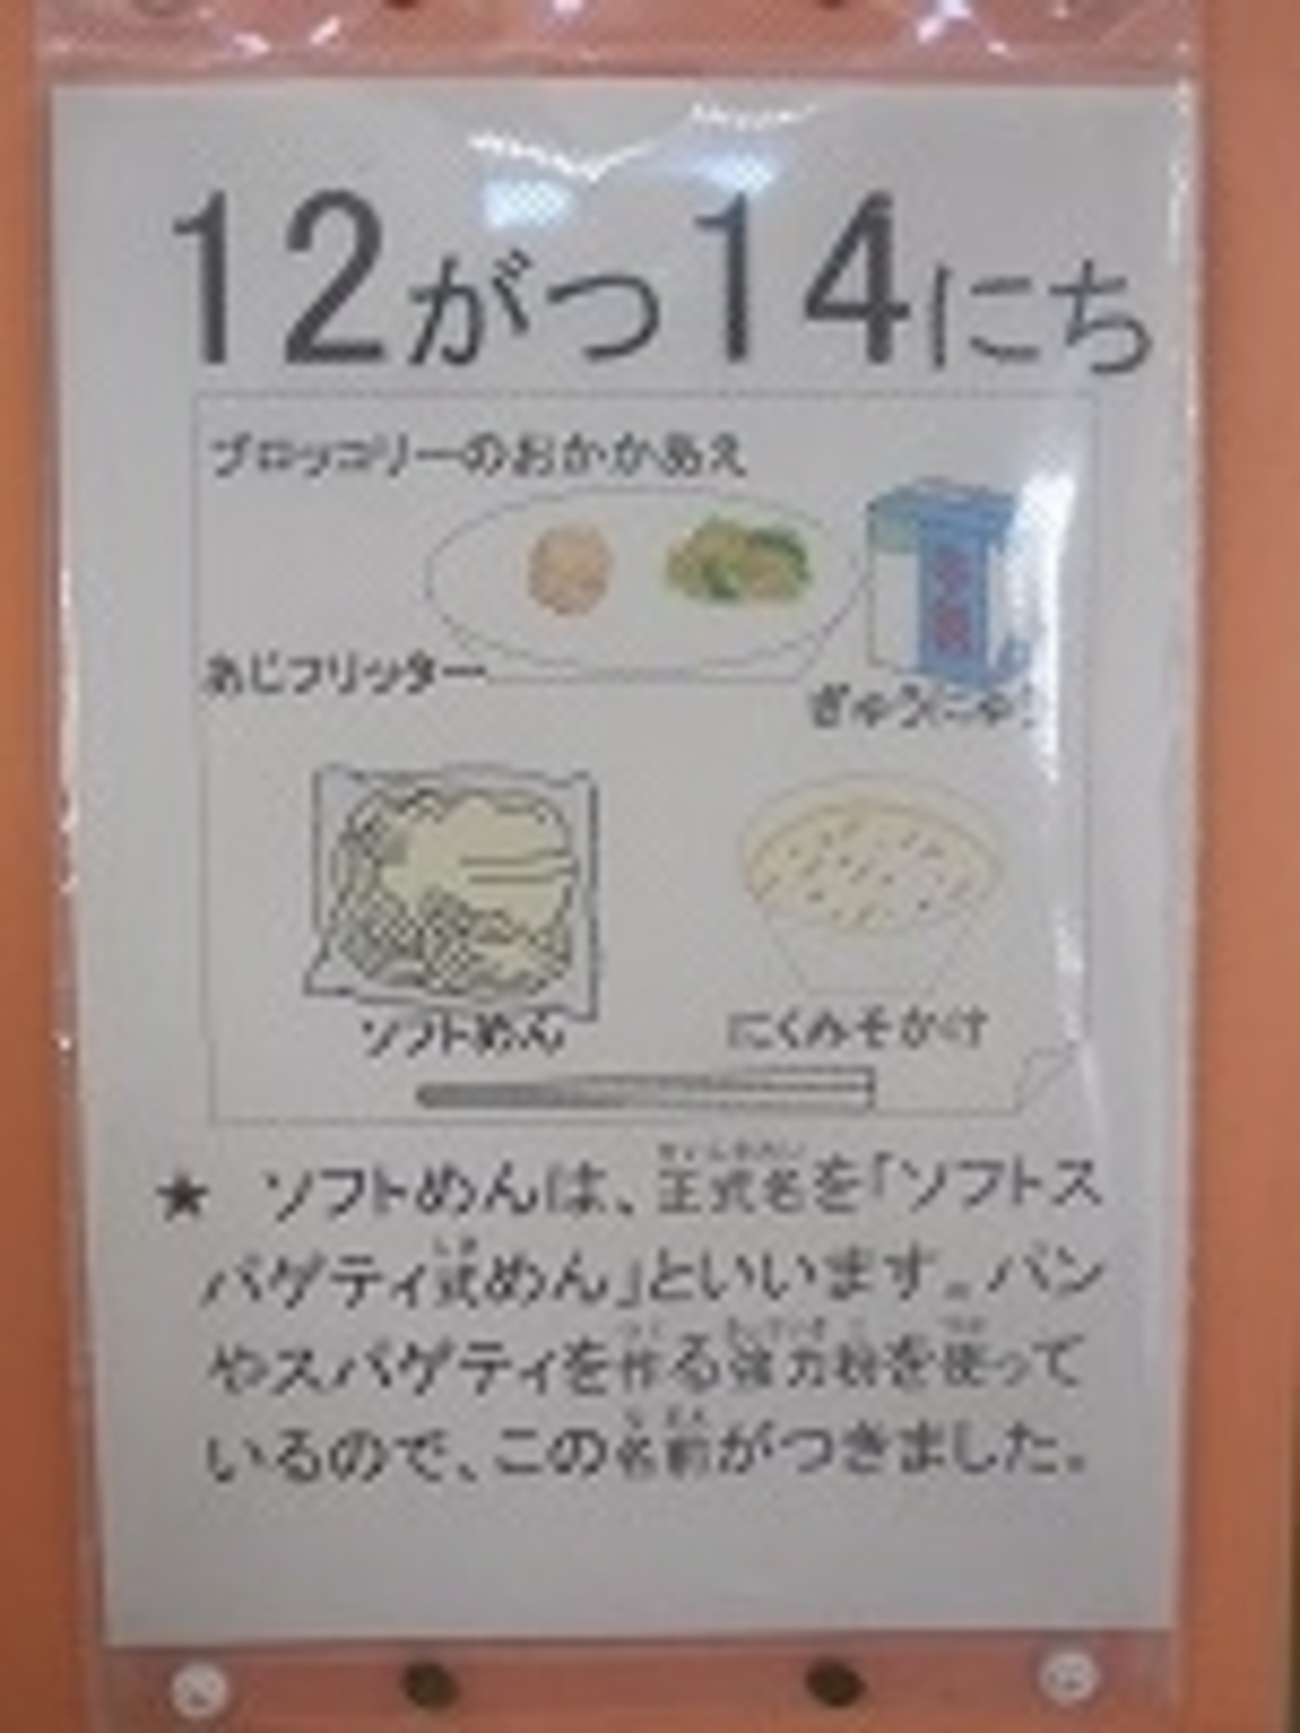 12がつ14にち
ブロッコリーのおかかあえ
あじフリッター
ぎゅうにゅう
ソフトめん
にくみそかけ
★ ソフトめんは、正式名を「ソフトス
パゲティ式めん」といいます。パン
やスパゲティを作る強力粉を使って
いるので、この名前がつきました。